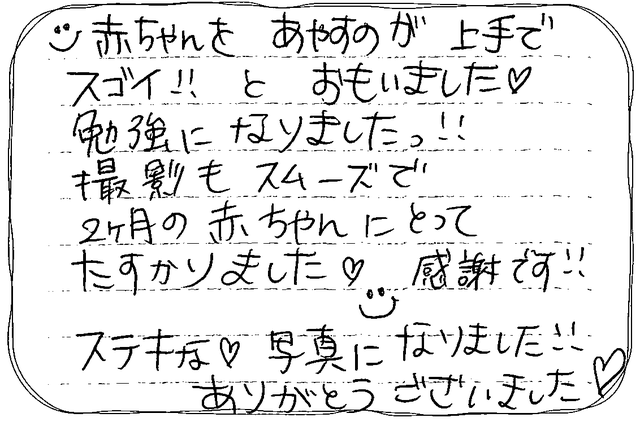 赤ちゃんを あやすのが 上手で
スゴイ!! と おもいました♡
勉強に なりましたっ!!
撮影も スムーズで
2ヶ月の 赤ちゃんにとって
たすかりました♡ 感謝です!!
ステキな♡ 写真に なりました!!
ありがとう ございました♡